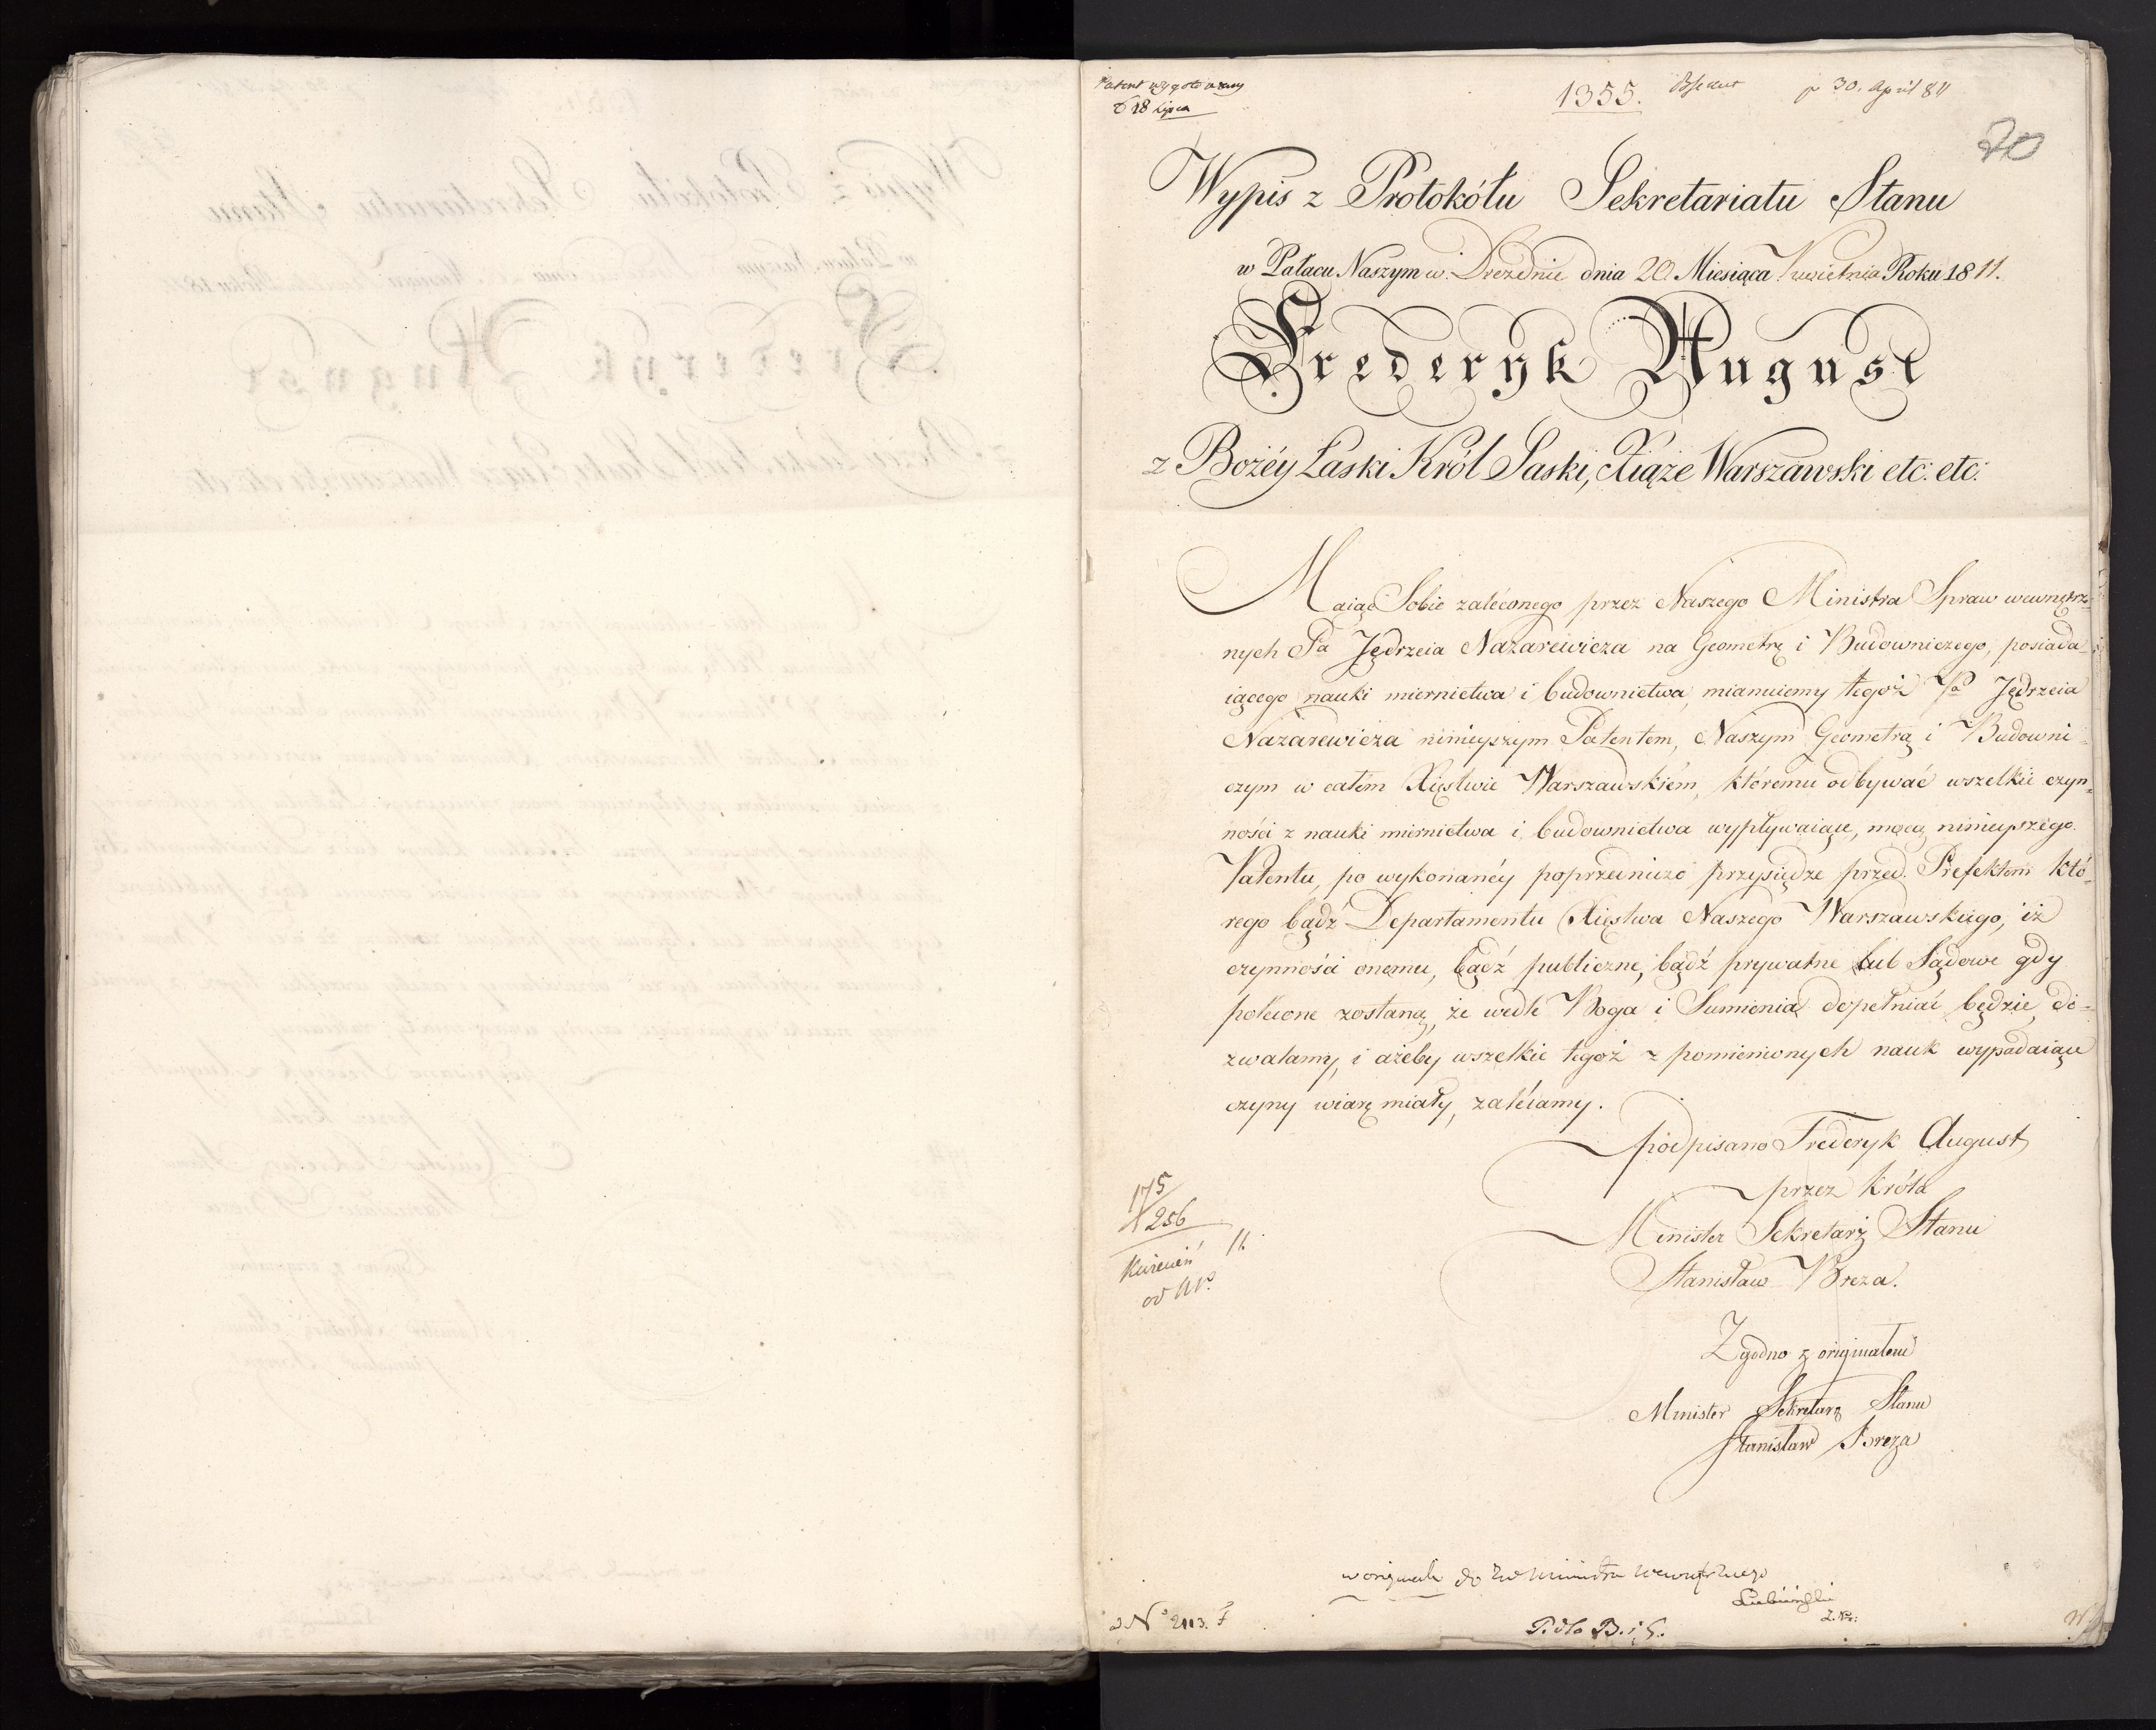 Patent wygotowany
d 18 Lipca
1355.
pr 30. April 811
70
Wypis z Protokółu Sekretariatu Stanu
w Pałacu Naszym w Dreźnie dnia 20. Miesiąca Kwietnia Roku 1811.
Frederyk August
z Bożéy Łaski Król Saski, Xiąże Warszawski etc: etc:
Maiąc Sobie zaleconego przez Naszego Ministra Spraw wewnętrz-
nych Pa Jędrzeia Nazarewicza na Geometrę i Budowniczego, posiada-
iącego nauki miernictwa i budownictwa, mianuiemy tegoż Pa Jędrzeia
Nazarewicza ninieyszym Patentem, Naszym Geometrą i Budowni-
czym w całém Xięstwie Warszawskiém, któremu odbywać wszelkie czyn-
ności z nauki miernictwa i budownictwa wypływaiące, mocą ninieyszego
Patentu, po wykonanéy poprzedniczo przysiędze przed Prefektem któ-
rego bądź Departamentu Xięstwa Naszego Warszawskiego, iż
czynności onemu, bądź publiczne, bądź prywatne lub Sądowe gdy
polecone zostaną, że wedle Boga i Sumienia dopełniać będzie, do-
zwalamy, i ażeby wszelkie tegoż z pomienionych nauk wypadaiące
czyny wiarę miały, zalécamy.
podpisano Frederyk August
przez Króla
Minister Sekretarz Stanu
Stanisław Breza.
175
256
Kwiecień 11.
Zgodno z originałem
Minister Sekretarz Stanu
Stanisław Breza
w originale do Ministra Wewnętrznego
Lubieński
ad No 2113.
P. dto B. i S.